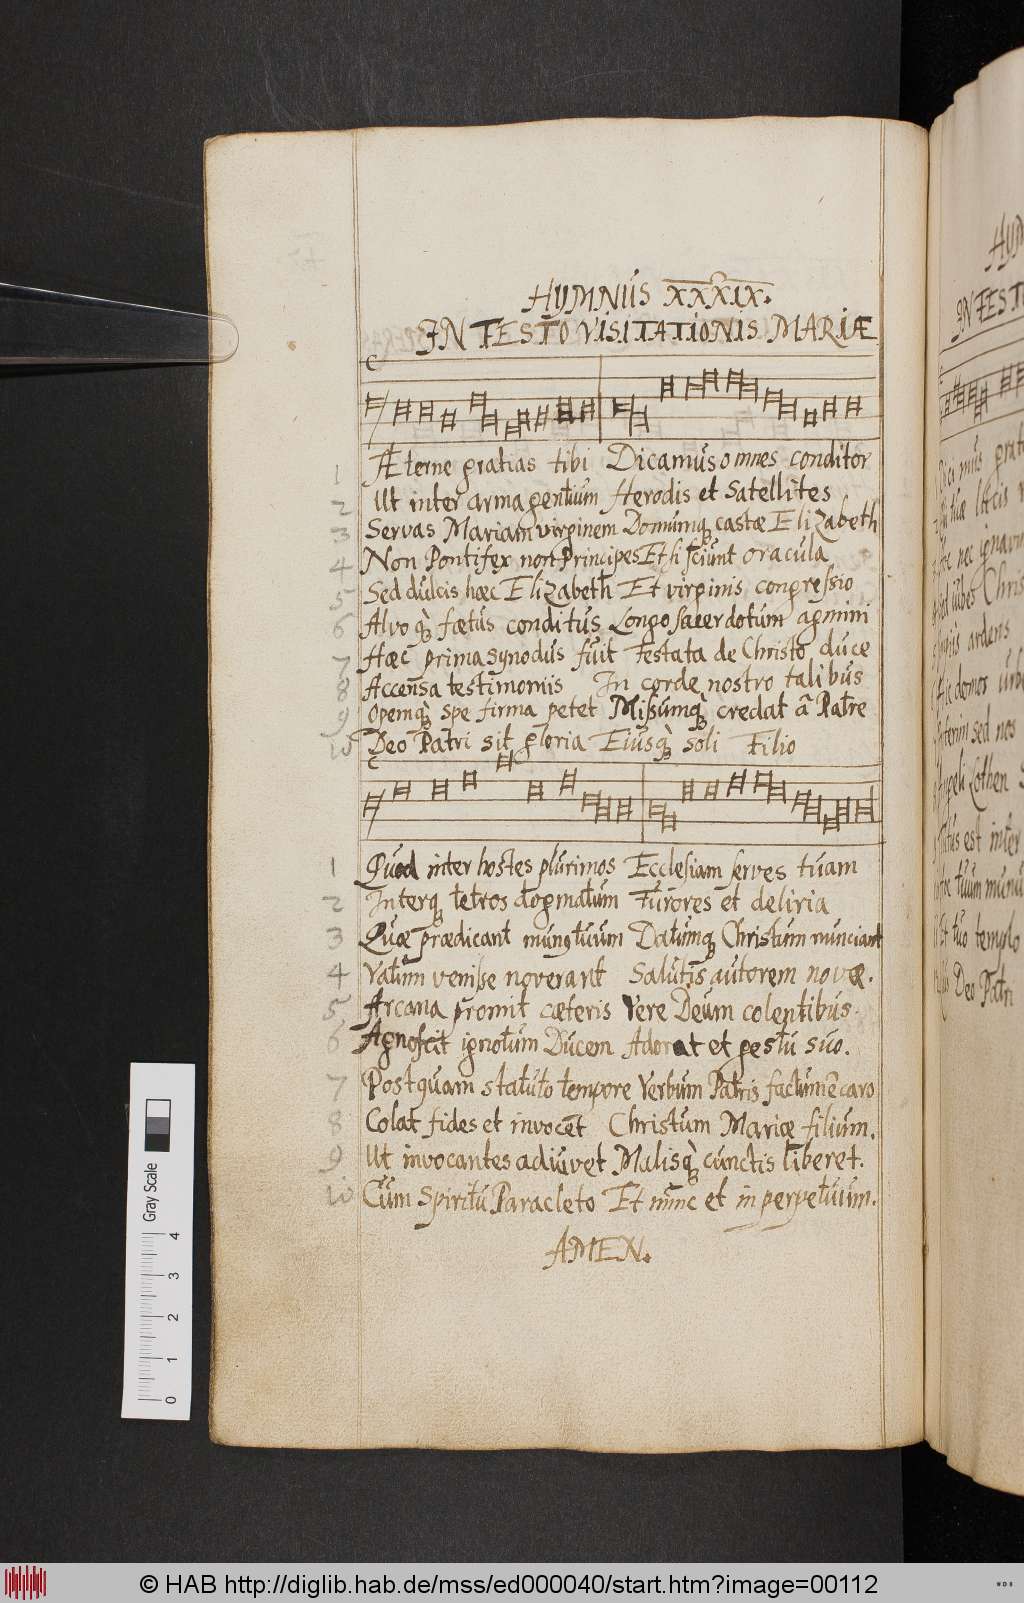 HYMNUS XXXIX.
IN FESTO VISITATIONIS MARIÆ
1 Æterne gratias tibi Dicamus omnes conditor
2 Ut inter arma gentium Herodis et Satellites
3 Servas Mariam virginem Domumq castæ Elizabeth
4 Non Pontifex non Principes Ethi sciunt oracula
5 Sed dulcis hæc Elizabeth Et virginis congressio
6 Alvo q̀ fœtus conditus Longo sacerdotum agmini
7 Hæc prima synodus fuit Testata de Christo duce
8 Accensa testimoniis In corde nostro talibus
9 Opemq̀ spe firma petet Missumq̀ credat â Patre
10 Deo Patri sit gloria Eiusq̀ soli Filio
1 Quod inter hostes plurimos Ecclesiam serves tuam
2 Interq tetros dogmatum Furores et deliria
3 Quæ prædicant munq tuum Datumq Christum nunciant
4 Vatum venisse noverant Salutis autorem novæ.
5 Arcana promit cæteris Vere Deum colentibus
6 Agnoscit ignotum Ducem Adorat et gestu suo.
7 Postquam statuto tempore Verbum Patris factum ē caro
8 Colat fides et invocet Christum Mariæ filium.
9 Ut invocantes adiuvet Malisq̀ cunctis liberet.
10 Cum Spiritu Paracleto Et nunc et in perpetuum.
AMEN.
HYM
IN FEST
Gray Scale
4
3
2
1
0
© HAB http://diglib.hab.de/mss/ed000040/start.htm?image=00112